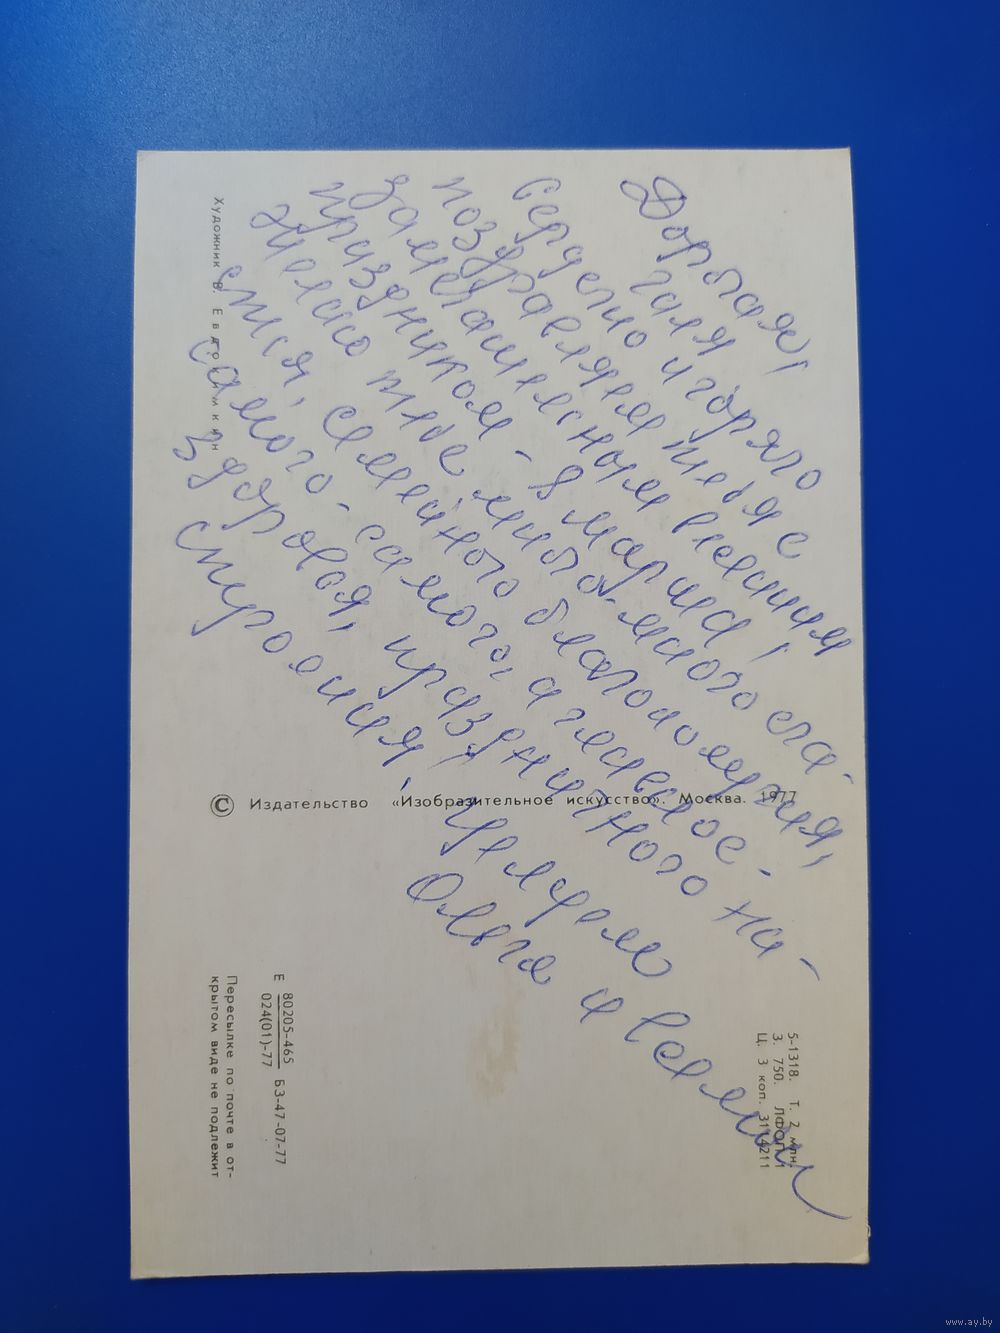 Дорогая
Галя!
Сердечно и горячо
поздравляем тебя с
замечательным весенним
праздником - 8 марта!
Желаю тебе много-много сча-
стья, семейного благополучия,
самого-самого, а главное -
здоровья, праздничного на-
строения! Целуем
Ольга и Евгений
Художник В. Евдокимкин
© Издательство «Изобразительное искусство». Москва. 1977
5-1318. Т. 2 млн.
З. 750. ЛФОП-1
Ц. 3 коп. 4211
Е 80205-465 БЗ-47-07-77
024(01)-77
Пересылке по почте в от-
крытом виде не подлежит
www.ay.by